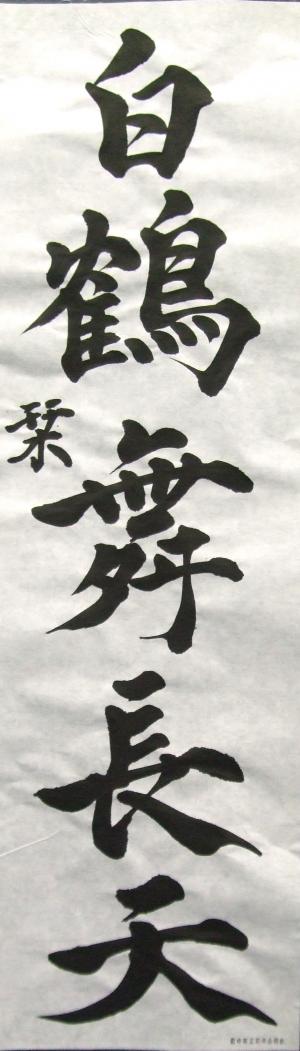 白鶴舞長天
栞